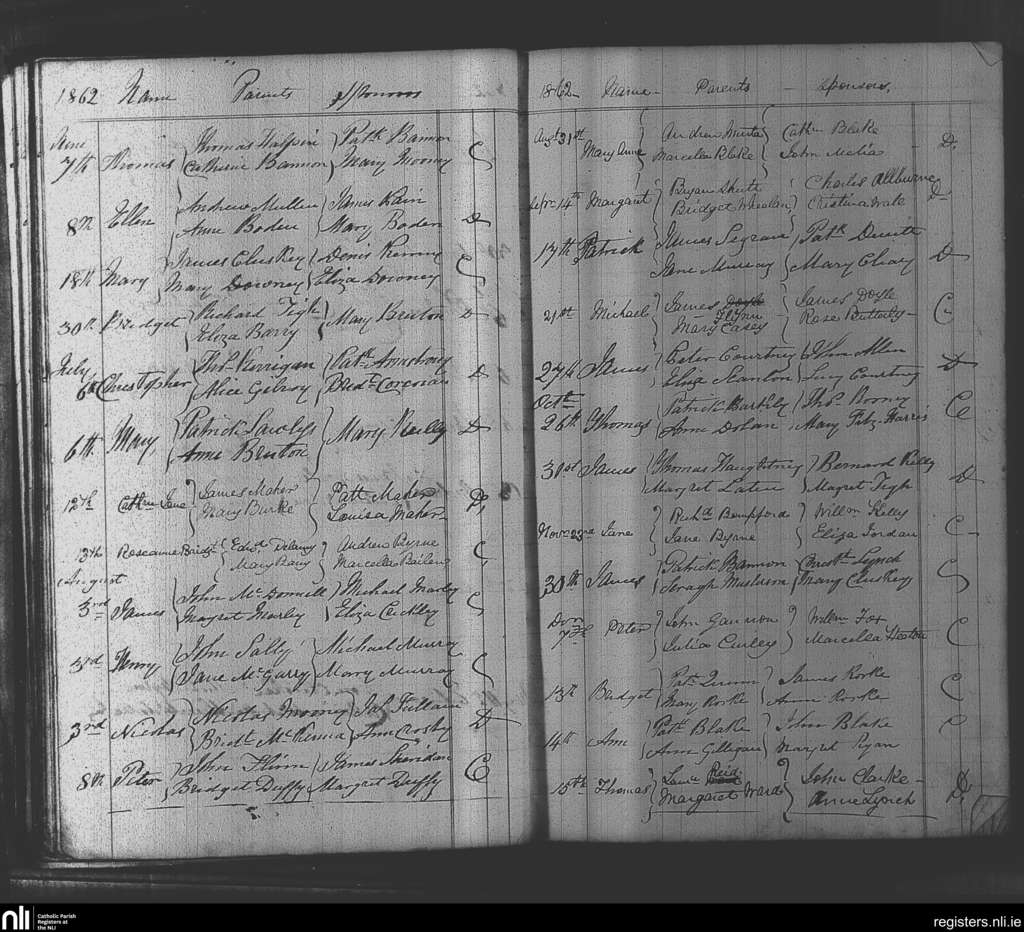 1862 Name Parents Sponsors
June
7th Thomas Thomas Halpin Patk Bannon C
Catherine Bannon Mary Mooney
8th Ellen Andrew Mullen James Kain D
Anne Boden Mary Boden
18th Mary James Cluskey Denis Kenny C
Mary Downey Eliza Downey
30th Bridget Richard Tigh Mary Bruton D
Eliza Barry
July
6th Christopher Thos Korrigan Patk Armstrong D
Alice Gilroy Bredt Corcoran
6th Mary Patrick Mary Reilly D
Anne Bruton
12th Cathrn Jane James Maher Patt Maher D
Mary Burke Louisa Maher
13th Roseanne Bridgt Edwd Delany Andrew Byrne C
Mary Marcella
August
3rd James John McDonnell Michael Marley C
Margret Marley Eliza
3rd Henry John Lally Michael Murray C
Jane McGarry Mary Murray
3rd Nicolas Nicolas Mooney Jas Fullam D
Bridt McKenna Ann Crosby
8th Peter John Flinn James Sheridan C
Bridget Duffy Margret Duffy
1862 Name Parents Sponsors
Augt 31st Mary Anne Andrew Murta Cathn Blake D.
Marcella Blake John Melia
Sepr 14th Margaret Bryan Shutt Charles Allburne D
Bridget Whealan Cristina Wale
17th Patrick James Segrave Patk D
Jane Murray Mary Cleary
21st Michael James Doyle James Doyle C
Flynn
Mary Casey Rose Butterly
27th James Peter Courtney John Allen D
Eliza Stanton Lucy Courtney
Octbr
26th Thomas Patrick Barkly Thos Rooney C
Anne Dolan Mary Fitz-Harris
30st James Thomas Haughtney Bernard Kelly D
Margret Laten Magret Tigh
Novr 23rd Jane Richd Willm Kelly C
Jane Byrne Eliza Jordan
30th James Patrick Bannon Christh Lynch C
Mary Cluskey
Decr
7th Peter John Gannon Willm Fox C
Julia Curley Marcella Heaton
13th Bridget Patk Quinn James Rorke C
Mary Rorke Anne Rorke
14th Ann Patk Blake John Blake C
Ann Gilligan Margret Ryan
15th Thomas Laur Reid John Clarke D
Margaret Ward Anne Lynch
nli Catholic Parish
Registers at
the NLI
registers.nli.ie